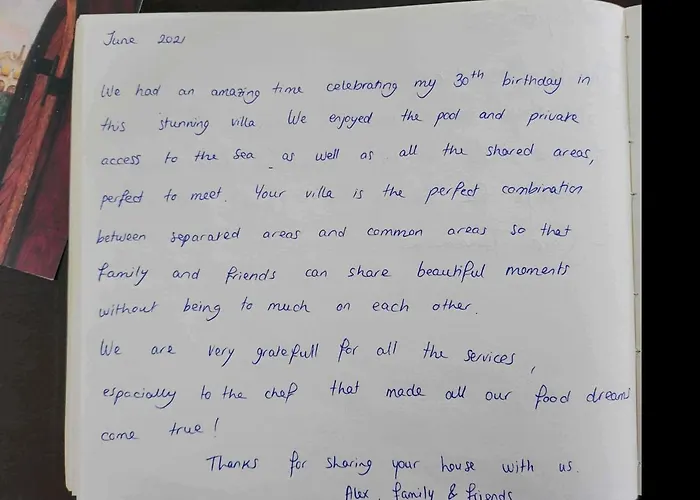 June 2021
We had an amazing time celebrating my 30th birthday in
this stunning villa We enjoyed the pool and private
access to the sea as well as all the shared areas,
perfect to meet. Your villa is the perfect combination
between separated areas and common areas so that
family and friends can share beautiful moments
without being to much on each other.
We are very gratefull for all the services,
espacially to the chef that made all our food dreams
come true!
Thanks for sharing your house with us.
Alex, family & friends